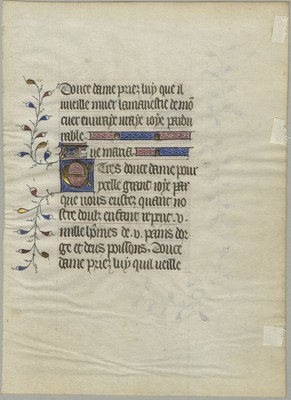 Doulce dame priez luy que il
vueille muer la maneste de mō
cuer en vraye ioye pardu
rable.
Aue maria.
Tres doulce dame pour
ycelle grant ioye par
que vous eustes quant no
stre doulz enfant reput .v.
mille hōmes de .v. pains dor
ge et deux poissons. Doulce
dame priez luy quil vueille